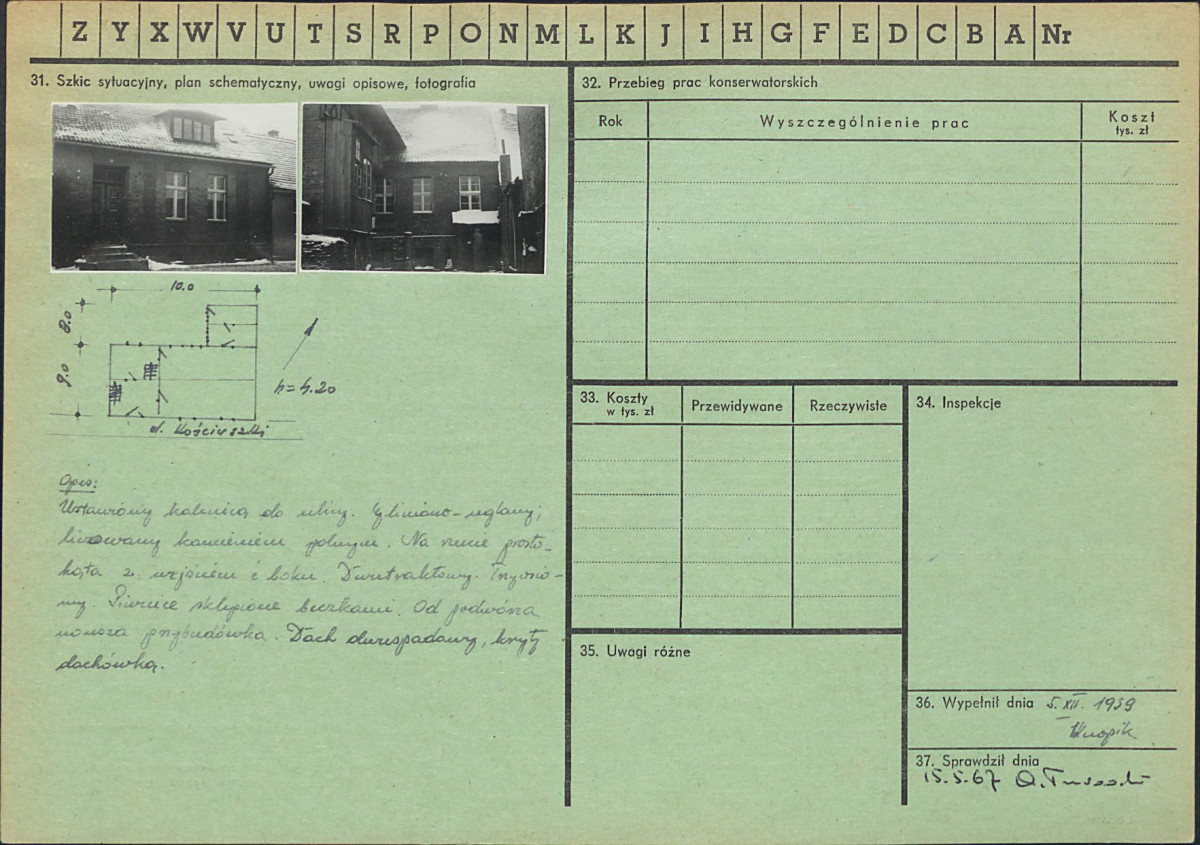 Z Y X W V U T S R P O N M L K J I H G F E D C B A Nr
31. Szkic sytuacyjny, plan schematyczny, uwagi opisowe, fotografia
10.0
8.0
9.0
h=4.20
ul. Kościuszki
Opis:
Ustawiony kalenicą do ulicy. Gliniano-ceglany;
licowany kamieniem polnym. Na rzucie prosto-
kąta z wejściem z boku. Dwutraktowy.
Piwnice sklepione beczkami. Od podwórza
nowsza przybudówka. Dach dwuspadowy, kryty
dachówką.
32. Przebieg prac konserwatorskich
Rok
Wyszczególnienie prac
Koszt
tys. zł
33. Koszty
w tys. zł
Przewidywane
Rzeczywiste
34. Inspekcje
35. Uwagi różne
36. Wypełnił dnia 5. XII. 1959
37. Sprawdził dnia
15.5.67